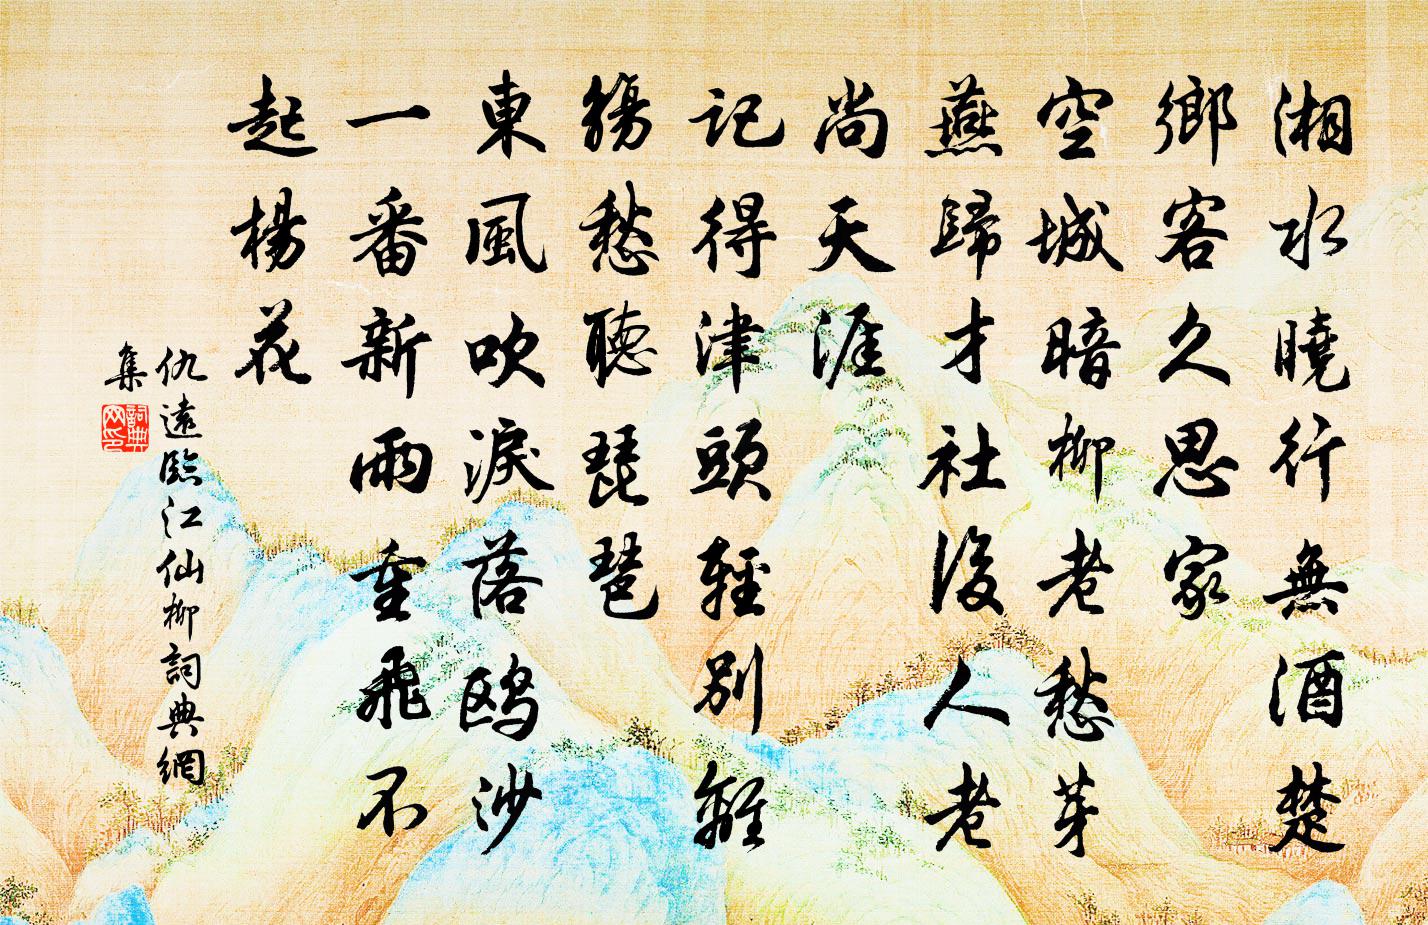 湘水曉行無酒楚
鄉客久思家
空城暗柳老愁芽
燕歸才社後人老
尚天涯
記得津頭輕別離
觴愁聽琵琶
東風吹淚落鷗沙
一番新雨重飛不
起楊花
仇遠臨江仙柳詞典網
集
詞典
网印